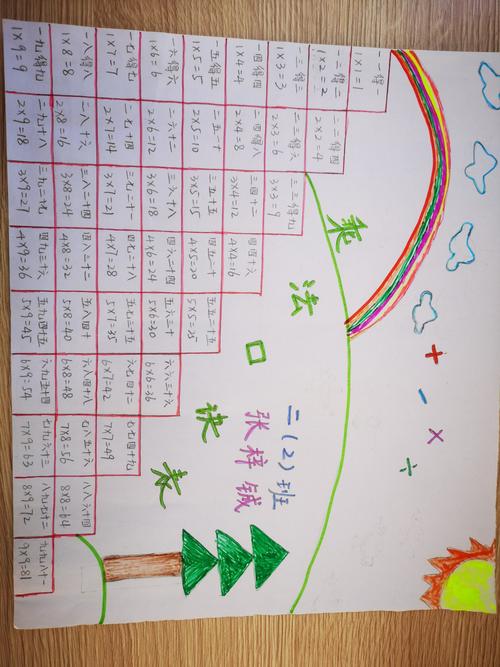 + - × ÷
一一得一
1×1=1
一二得二 二二得四
1×2=2 2×2=4
一三得三 二三得六 三三得九
1×3=3 2×3=6 3×3=9
一四得四 二四得八 三四十二 四四十六
1×4=4 2×4=8 3×4=12 4×4=16
一五得五 二五一十 三五十五 四五二十 五五二十五
1×5=5 2×5=10 3×5=15 4×5=20 5×5=25
一六得六 二六十二 三六十八 四六二十四 五六三十 六六三十六
1×6=6 2×6=12 3×6=18 4×6=24 5×6=30 6×6=36
一七得七 二七十四 三七二十一 四七二十八 五七三十五 六七四十二 七七四十九
1×7=7 2×7=14 3×7=21 4×7=28 5×7=35 6×7=42 7×7=49
一八得八 二八十六 三八二十四 四八三十二 五八四十 六八四十八 七八五十六 八八六十四
1×8=8 2×8=16 3×8=24 4×8=32 5×8=40 6×8=48 7×8=56 8×8=64
一九得九 二九十八 三九二十七 四九三十六 五九四十五 六九五十四 七九六十三 八九七十二 九九八十一
1×9=9 2×9=18 3×9=27 4×9=36 5×9=45 6×9=54 7×9=63 8×9=72 9×9=81
乘法口诀表
二(2)班
张梓铖